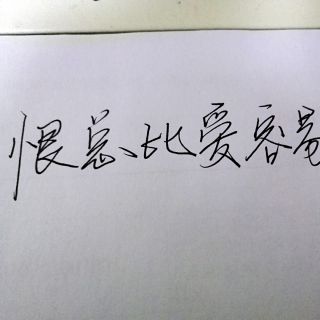 恨总比爱容易